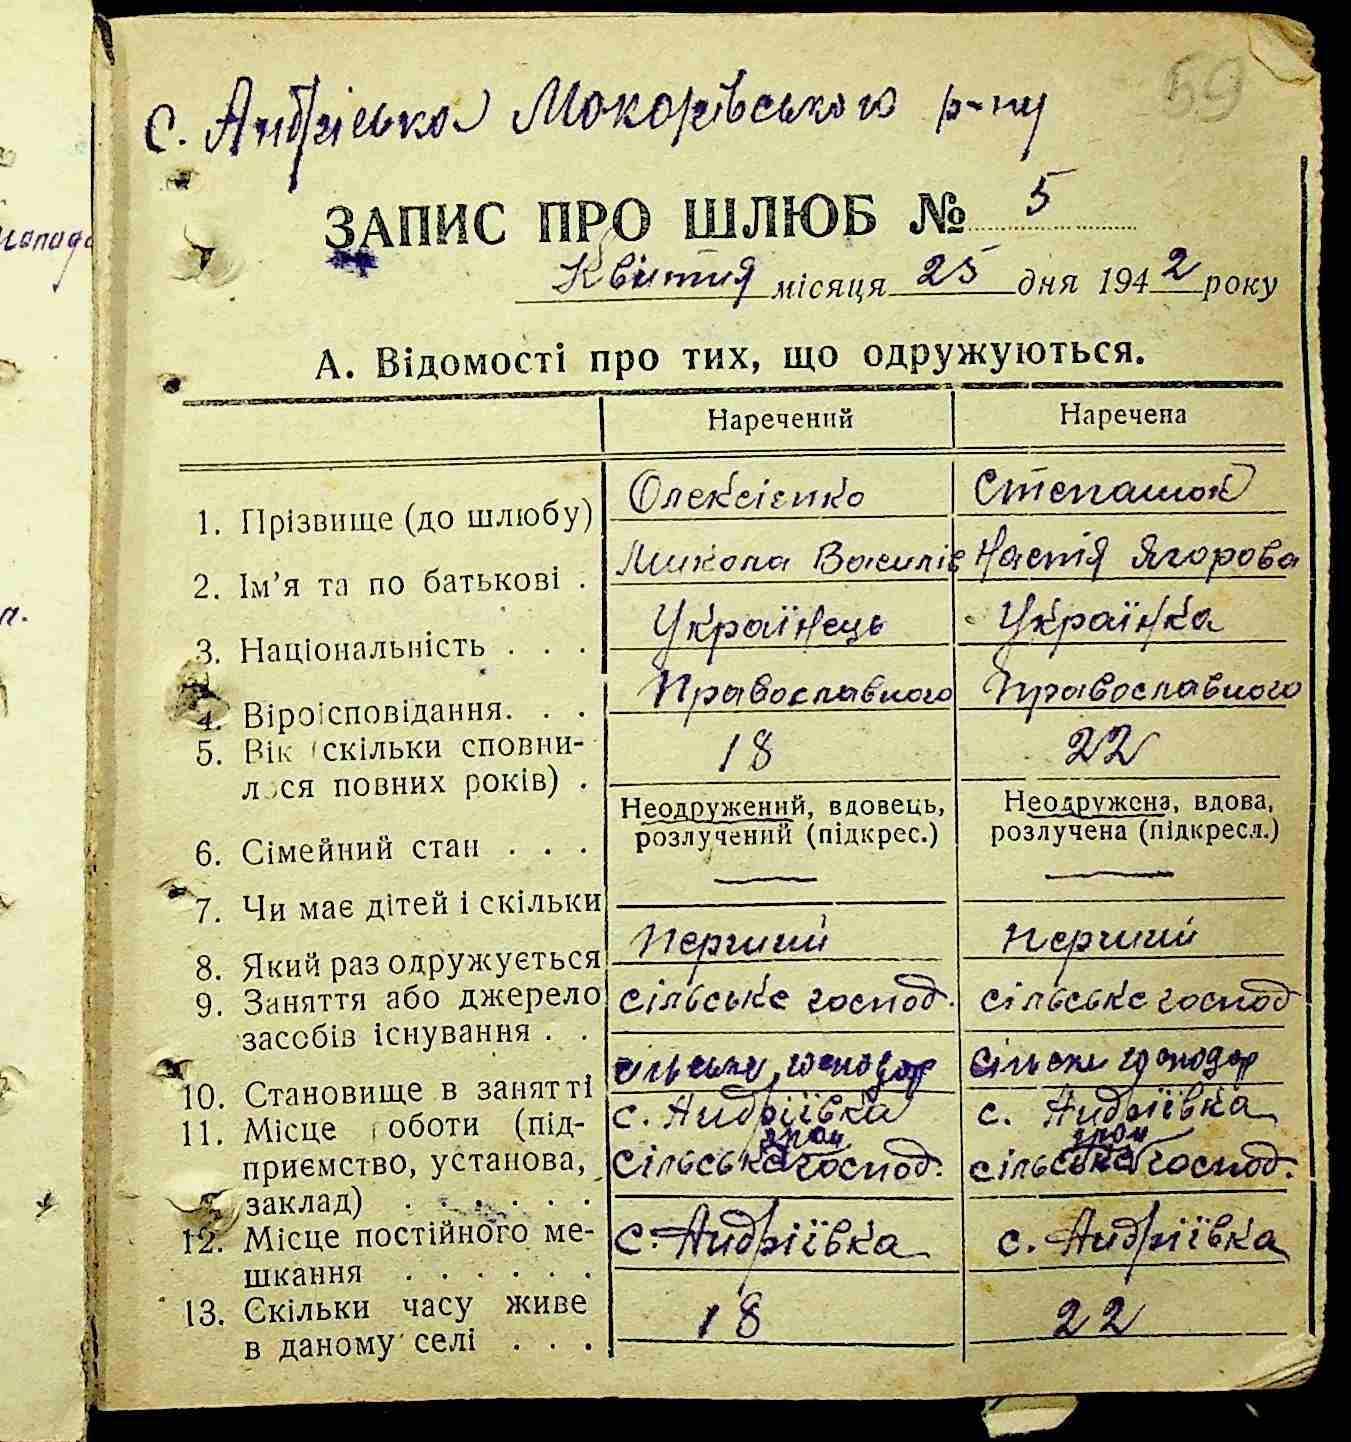 59
с. Андрієвка Мокарівського р-ну
ЗАПИС ПРО ШЛЮБ № 5
Квітня місяця 25 дня 1942 року
А. Відомості про тих, що одружуються.
Наречений Наречена
1. Прізвище (до шлюбу) Олексієнко Степанюк
2. Ім'я та по батькові . Микола Василів Настія Ягорова
3. Національність . . . Українець Українка
4. Віроісповідання. . . Православного Православного
5. Вік (скільки сповни-
лося повних років) . 18 22
6. Сімейний стан . . . Неодружений, вдовець, розлучений (підкрес.) Неодружена, вдова, розлучена (підкресл.)
7. Чи має дітей і скільки — —
8. Який раз одружується Перший Перший
9. Заняття або джерело
засобів існування . . сільське господ. сільське господ
10. Становище в занятті сільське господар сільски господар
11. Місце роботи (під- с. Андріївка с. Андріївка
приємство, установа, сільське гром господ. сільське гром господ.
заклад) . . . . . .
12. Місце постійного ме-
шкання . . . . . . с. Андріївка с. Андріївка
13. Скільки часу живе
в даному селі . . . 18 22